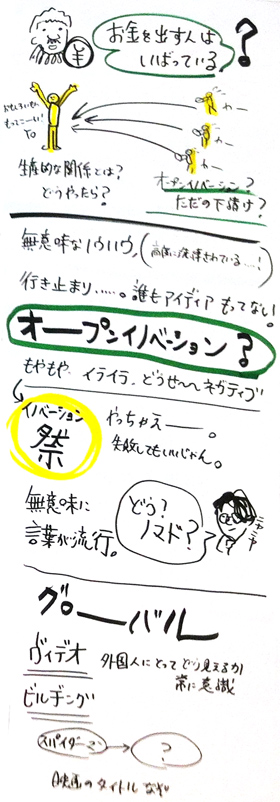 お金を出す人は
いばっている
?
¥
わー
わー
わー
もってこーい!
生産的な関係とは?
どうやったら?
オープンイノベーション?
ただの下請け?
無意味なノウハウ。
行き止まり……。誰もアイディアもってない
オープンイノベーション?
もやもや イライラ、どうせ〜〜 ネガティブ
イノベーション
祭
やっちゃえーー。
失敗してもいいじゃん。
無意味に
言葉が流行。
どう?
ノマド?
ニヤ
ニヤ
グローバル
ヴィデオ
ビルヂング
外国人にとってどう見えるか
常に意識
スパイダーマン
?
映画のタイトルなぞ